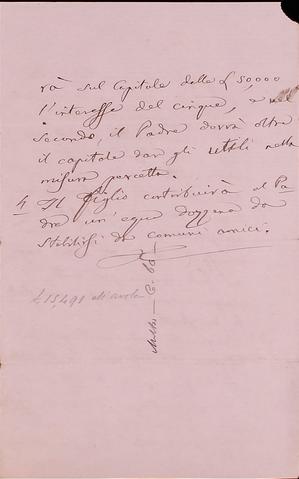 rà sul Capitale delle £ 50,000
l'interesse del cinque, e nel
secondo, il Padre dovrà oltre
il capitale dar gli utili nella
misura percetta.
4 Il Figlio contribuirà al Pa
dre un'equa dozzena da
Stabilirsi da comuni amici.
£ 15,491